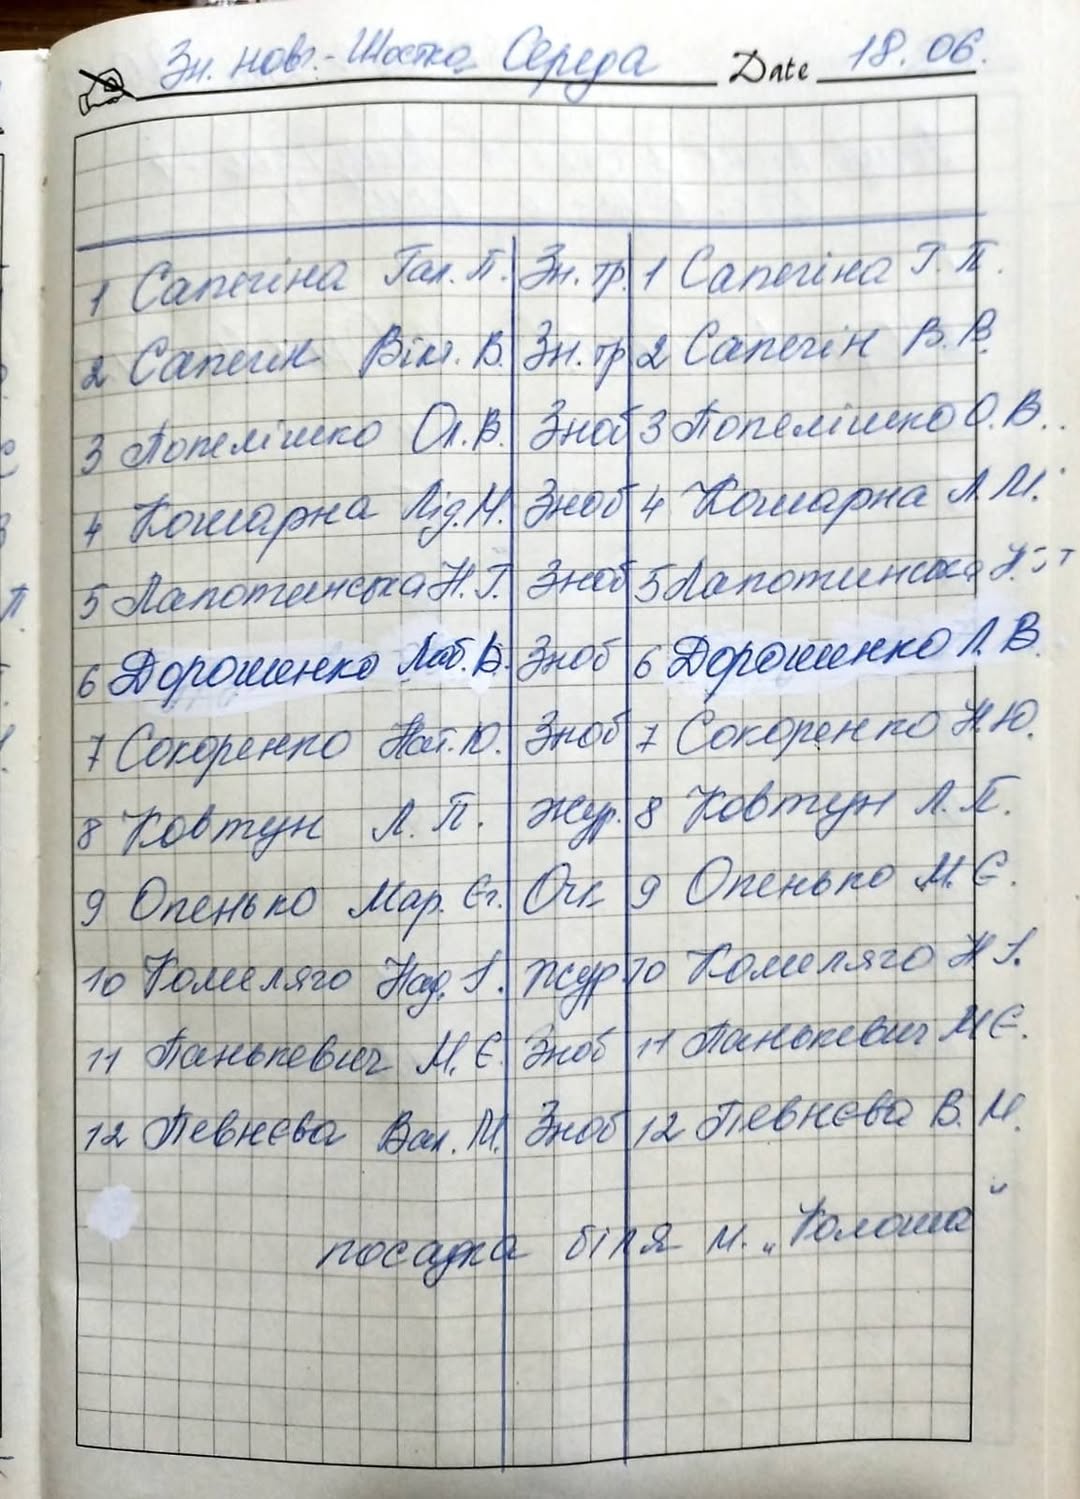 Зн. Новг.-Шостка Середа Date 18.06.
1 Сапегіна Гал. П. Зн. тр. 1 Сапегіна Г. П.
2 Сапегін Вікт. В. Зн. тр 2 Сапегін В. В.
3 Попелішко Ол. В. Зноб 3 Попелішко О. В.
4 Кошарна Лід. М. Зноб 4 Кошарна Л М.
5 Лапотинська Н. Г. Зноб 5 Лапотинська
6 Дорошенко Люб. В. Зноб 6 Дорошенко Л. В.
7 Сокоренко Нат. Ю. Зноб 7 Сокоренко Н. Ю.
8 Ковтун Л. П. Жур. 8 Ковтун Л. П.
9 Опенько Мар. Єг. Очк 9 Опенько М. Є.
10 Комеляго Над. І. Жур 10 Комеляго Н І.
11 Панькевич М. Є. Зноб 11 Панькевич М Є.
12 Певнєва Вал. М. Зноб 12 Певнєва В. М.
посадка біля м. „Колоша"